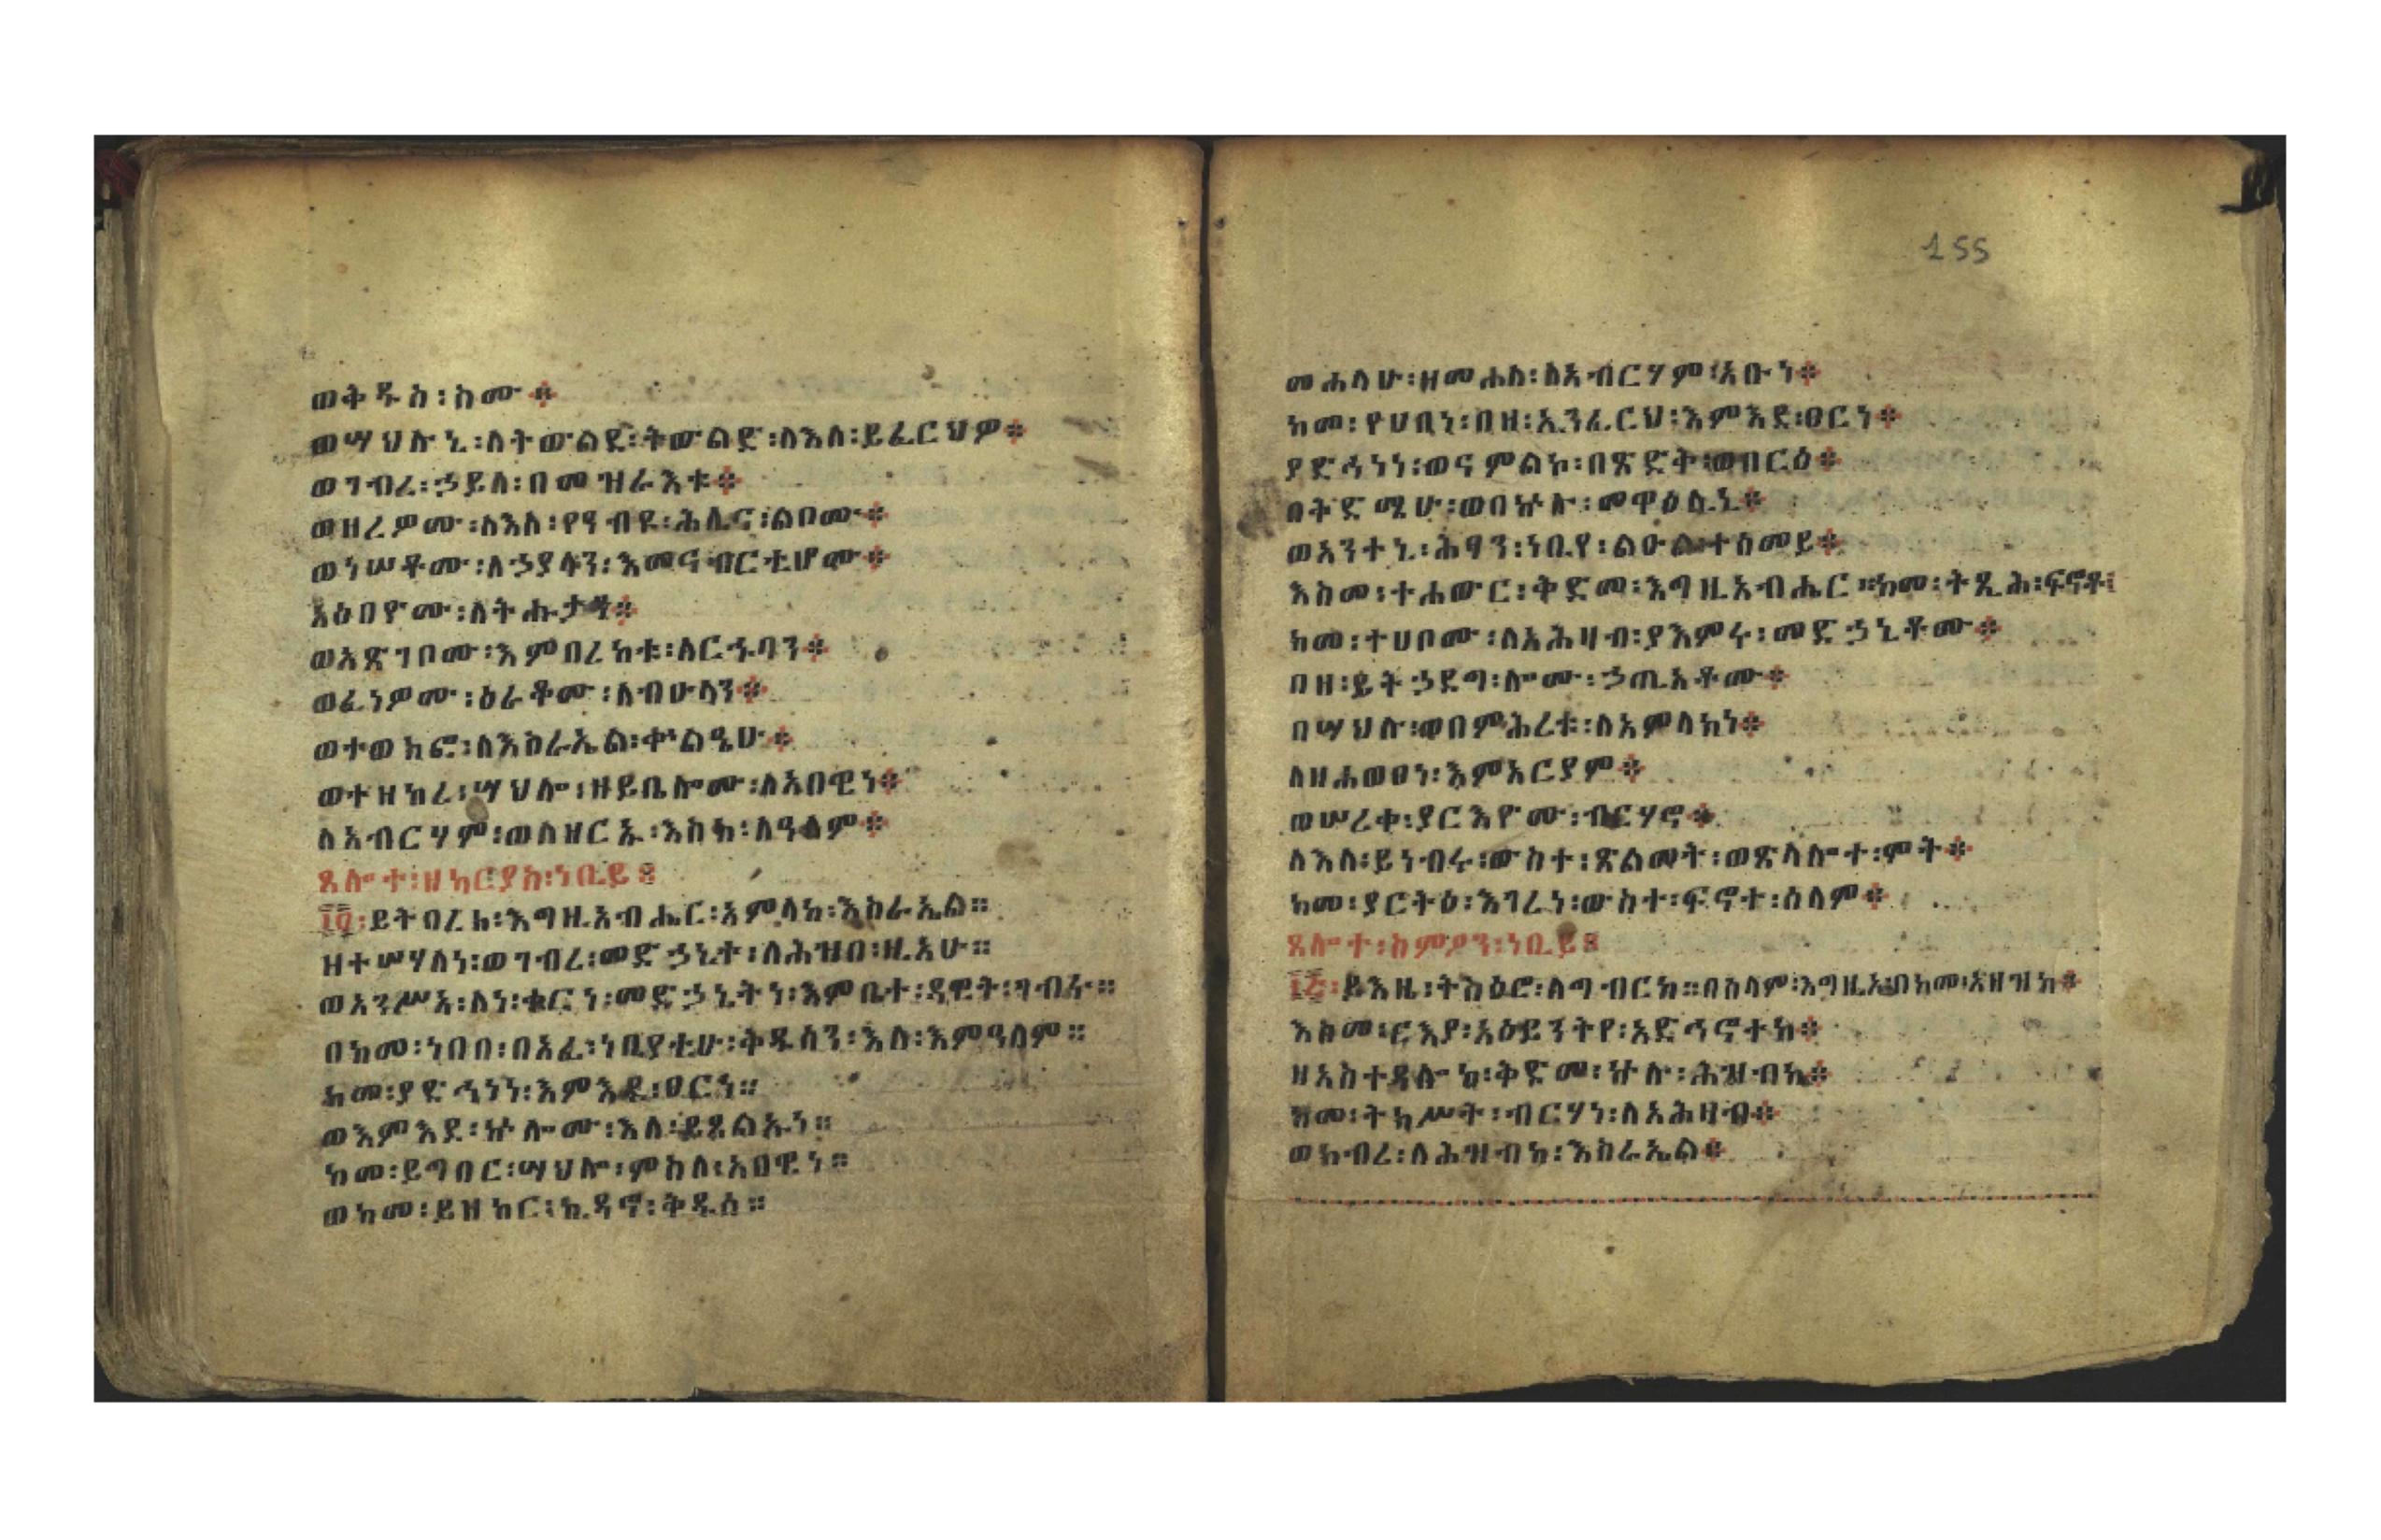 ወቅዱስ፡ስሙ።
ወሣህሉኒ፡ለትውልደ፡ትውልድ፡ለእለ፡ይፈርህዎ።
ወገብረ፡ኃይለ፡በመዝራእቱ።
ወዘረዎሙ፡ለእለ፡የዓብዩ፡ሕሊና፡ልቦሙ።
ወነሠቶሙ፡ለኃያላን፡እመናብርቲሆሙ።
አዕበዮሙ፡ለትሑታን።
ወአጽገቦሙ፡እምበረከቱ፡ለርኁባን።
ወፈነዎሙ፡ዕራቆሙ፡ለብዑላን።
ወተወክፎ፡ለእስራኤል፡ቍልዔሁ።
ወተዘከረ፡ሣህሎ፡ዘይቤሎሙ፡ለአበዊነ።
ለአብርሃም፡ወለዘርኡ፡እስከ፡ለዓለም።
ጸሎተ፡ዘካርያስ፡ነቢይ።
፲፬፡ይትባረክ፡እግዚአብሔር፡አምላከ፡እስራኤል።
ዘተሣሃለነ፡ወገብረ፡መድኃኒተ፡ለሕዝበ፡ዚአሁ።
ወአንሥአ፡ለነ፡ቀርነ፡መድኃኒትነ፡እምቤተ፡ዳዊት፡ገብሩ።
በከመ፡ነበበ፡በአፈ፡ነቢያቲሁ፡ቅዱሳን፡እለ፡እምዓለም።
ከመ፡ያድኅነነ፡እምእደ፡ፀርነ።
ወእምእደ፡ኵሎሙ፡እለ፡ይጸልኡነ።
ከመ፡ይግበር፡ሣህሎ፡ምስለ፡አበዊነ።
ወከመ፡ይዝከር፡ኪዳኖ፡ቅዱሰ።
155
መሐላሁ፡ዘመሐለ፡ለአብርሃም፡አቡነ።
ከመ፡የሀበነ፡በዘ፡ኢንፈርህ፡እምእደ፡ፀርነ።
ያድኅነነ፡ወናምልኮ፡በጽድቅ፡ወበርዕ።
በቅድሜሁ፡ወበኵሉ፡መዋዕሊነ።
ወአንተኒ፡ሕፃን፡ነቢየ፡ልዑል፡ተሰመይ።
እስመ፡ተሐውር፡ቅድመ፡እግዚአብሔር።ከመ፡ትጺሕ፡ፍኖቶ፡
ከመ፡ተሀቦሙ፡ለአሕዛብ፡ያእምሩ፡መድኃኒቶሙ።
በዘ፡ይትኃደግ፡ሎሙ፡ኃጢአቶሙ።
በሣህሉ፡ወበምሕረቱ፡ለአምላክነ።
ለዘሐወፀነ፡እምአርያም።
ወሠረቀ፡ያርእዮሙ፡ብርሃኖ።
ለእለ፡ይነብሩ፡ውስተ፡ጽልመት፡ወጽላሎተ፡ምት።
ከመ፡ያርትዕ፡እገረነ፡ውስተ፡ፍኖተ፡ሰላም።
ጸሎተ፡ስምዖን፡ነቢይ።
፲፭፡ይእዜ፡ትስዕሮ፡ለግብርከ።በሰላም፡እግዚኦ፡በከመ፡አዘዝከ።
እስመ፡ርእያ፡አዕይንትየ፡አድኅኖተከ።
ዘአስተዳሎከ፡ቅድመ፡ኵሉ፡ሕዝብከ።
ከመ፡ትክሥት፡ብርሃነ፡ለአሕዛብ።
ወክብረ፡ለሕዝብከ፡እስራኤል።